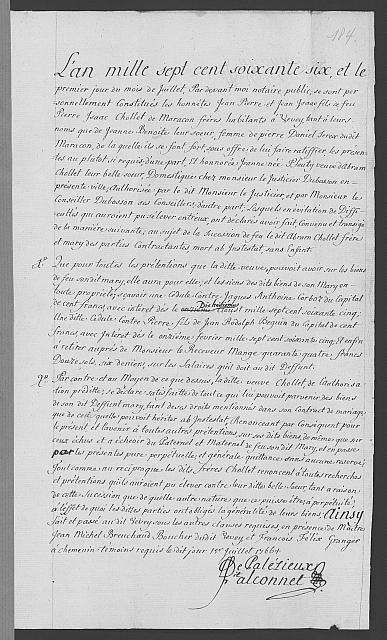 184.
L'an mille sept cent soixante six, et le
premier jour du mois de Juillet, Par devant moi notaire public, se sont per
sonnellement Constitués les honnêtes Jean Pierre, et Jean Isaac fils de feu
Pierre Isaac Chollet de Maracon frères habitants à Vevey, tant à leurs
noms que de Jeanne Benoite leur soeur, femme de pierre Daniel Serex dudit
Maracon, de la quelle ils se font fort, sous offre de lui faire ratiffier les presen
tes au plutot si requis, d'une part, Et honnorée Jeanne née veuve d'Abram
Chollet leur belle soeur, Domestique chez monsieur le Justicier Dubosson en
presente ville, Authorisée par le dit Monsieur le Justicier, et par Monsieur le
Conseiller Dubosson ses Conseillers, d'autre part, Lesquels en évitation de Deffi
cultés qui auroient pu s'élever entr'eux, ont déclaré avoir fait, Convenu et transigé
de la manière suivante, au sujet de la Succession de feu le dit Abram Chollet frère
et mary des parties Contractantes mort ab Intestat, sans Enfant.
Que pour toutes les prétentions que la ditte veuve pouvoit avoir sur les biens
de feu son dit mary, elle aura pour elle; et les siens des dits biens de son Mary en
toute proprieté; sçavoir une Cedule Contre Jaques Anthoine Corboz du Capital
de cent francs, avec interet dès le Aoust mille sept cent soixante cinq;
Une ditte Cedule Contre Pierre, fils de Jean Rodolph Beguin du Capital de cent
francs, avec Interet dès le onzième fevrier mille sept cent soixante cinq; Et enfin
à retirer auprès de Monsieur le Receveur Mange, quarante quatre francs
Douze sols, six deniers, sur les Salaires qu'il doit au dit Deffunt.
Par contre et au Moyen de ce que dessus, la ditte veuve Chollet, de l'authorisa
tion préditte; se déclare satisfaitte; de tout ce qui lui pouvoit parvenir des biens
de son dit Deffunt mary, tant de ses droits mentionnés dans son Contract de mariage,
que de ceux quelle pouvoit hériter ab Intestat; Renonceant par Consequent pour
le present et l'avenir à toutes autres prétentions sur ses dits biens, de même que sur
ceux échus et à écheoir du Paternel et Maternel de feu son dit Mary, et en passe
par les présentes pure perpétuelle, et générale quittance, dans aucune reserve;
Tout comme au réciproque les dits, frères Chollet renoncent à toutes recherches
et prétentions qu'ils auroient pu élever contre leur ditte belle Soeur, tant à raison
de cette Succession que de quelle autre nature que ce puisse être, à perpétuité;
à l'effet de quoi les dittes parties ont obligés la généralité de leurs biens, Ainsy
fait et passé au dit Vevey sous les autres clauses requises, en presence de Maitre
Jean Michel Breuchaud Boucher du dit Vevey et François Félix Granger
à chemenin temoins requis le dit jour 1er Juillet 1766.
De Palézieux
Falconnet